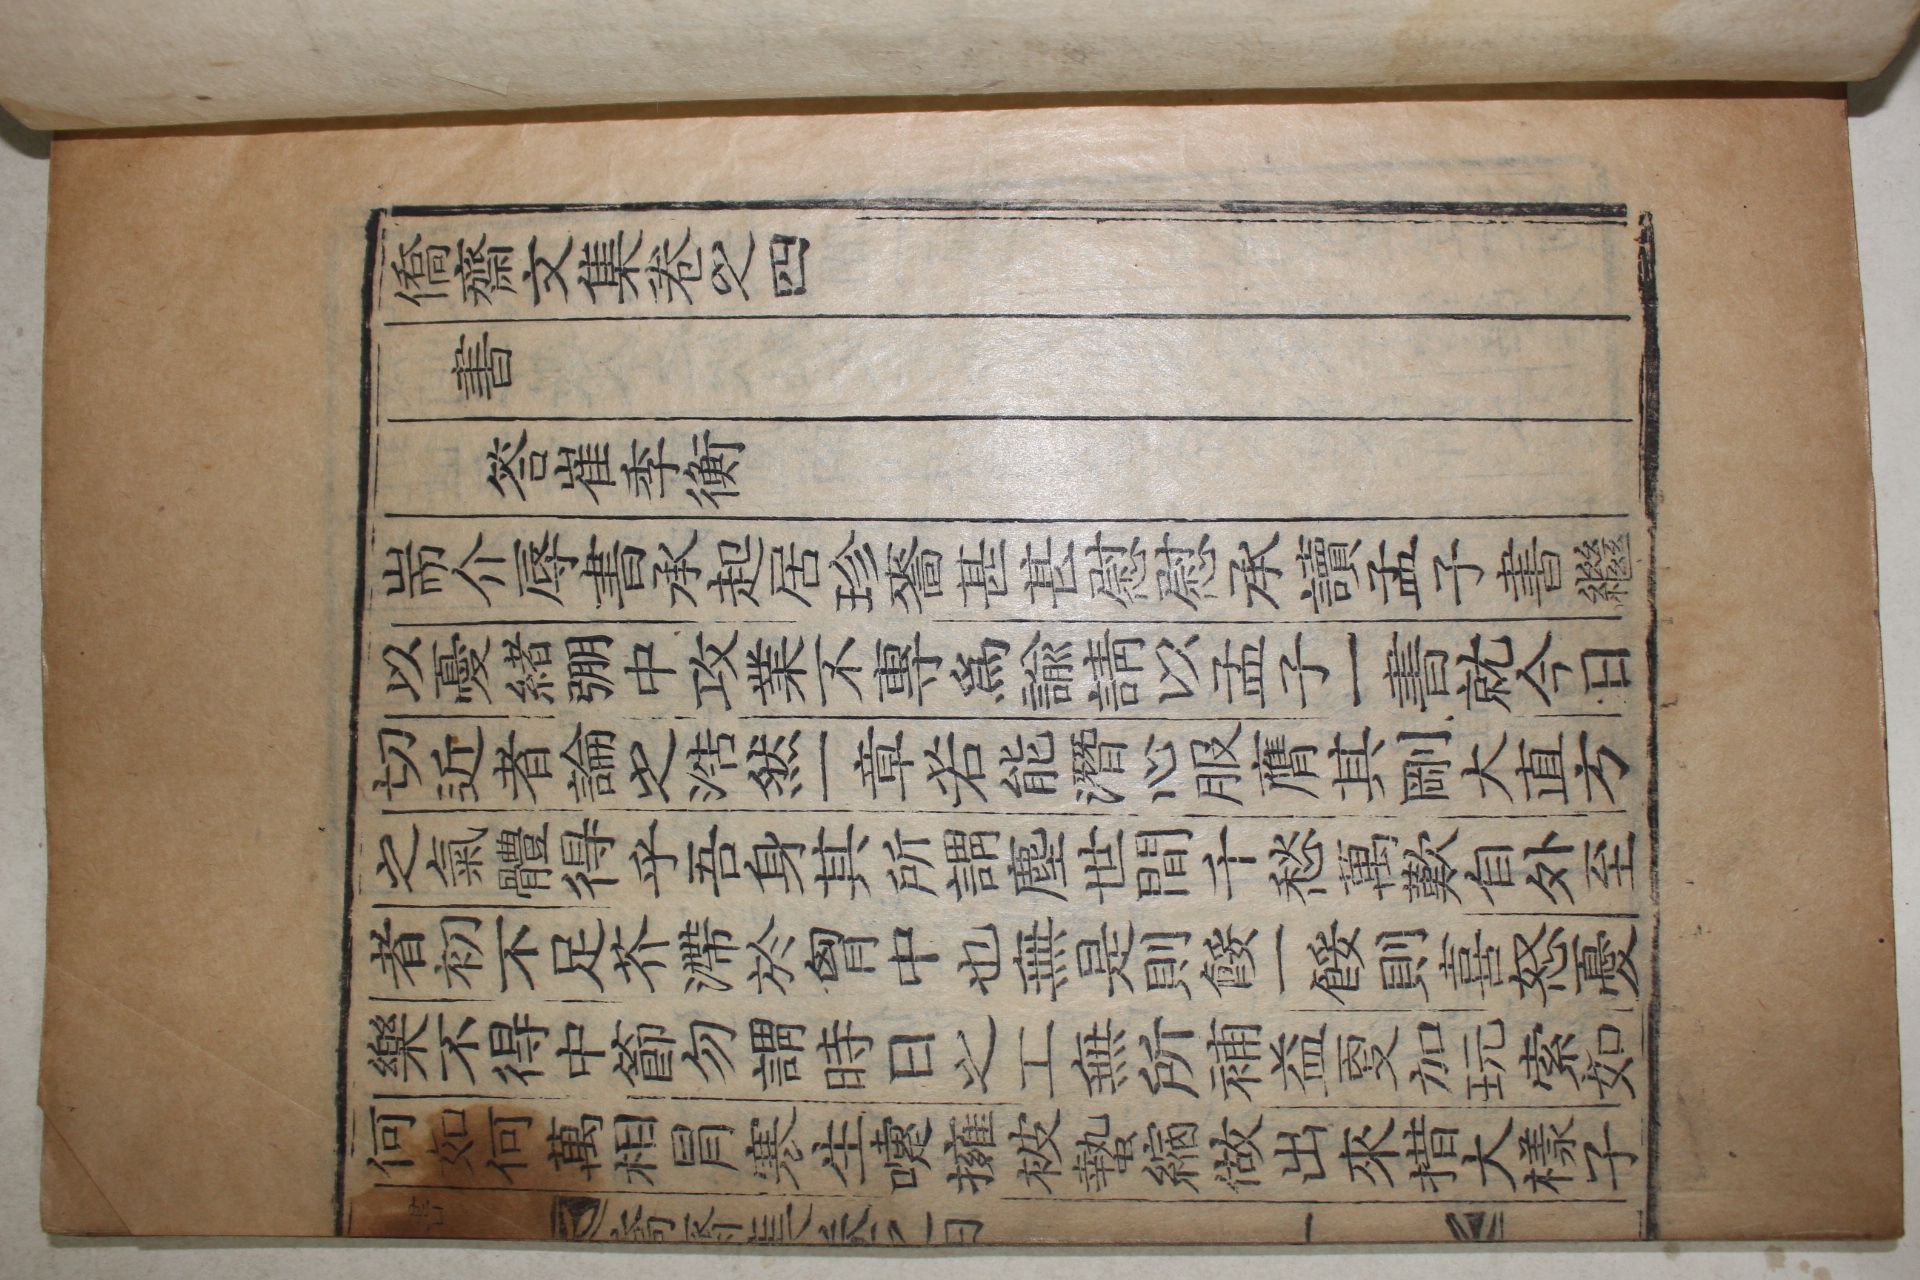 僑齋文集卷之四
書
答崔季衡
耑介辱書承起居珍嗇甚甚慰慰承讀孟子書繼
以憂緒弸中攻業不專爲諭請以孟子一書就今日
切近者論之浩然一章若能潛心服膺其剛大直方
之氣體得乎吾身其所謂塵世間千愁萬歎自外至
者初不足芥滯於胷中也無是則餒一餒則喜怒憂
樂不得中節勿謂時日之工無所補益更加玩索如
何如何萬相冒寒生嚏擁被蟄縮做出來措大樣子
書
僑齋集卷之四
一